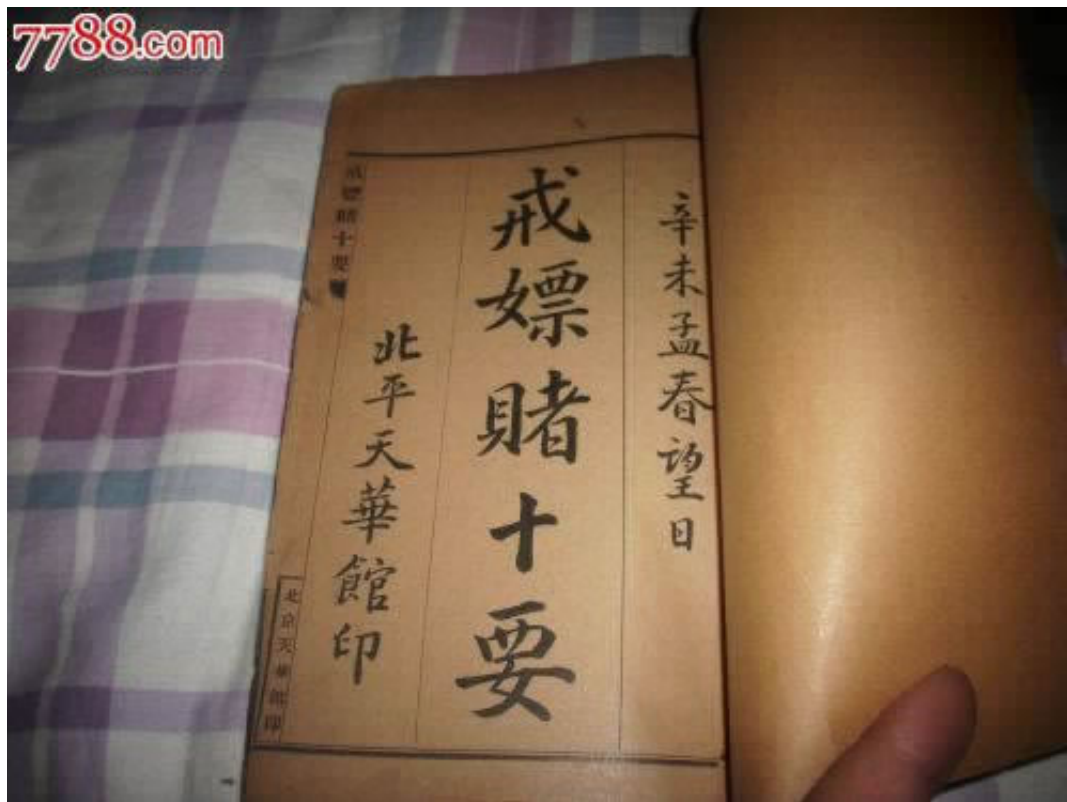 7788.com
辛未孟春望日
戒嫖賭十要
北平天華館印
戒嫖賭十要
北京天華館印